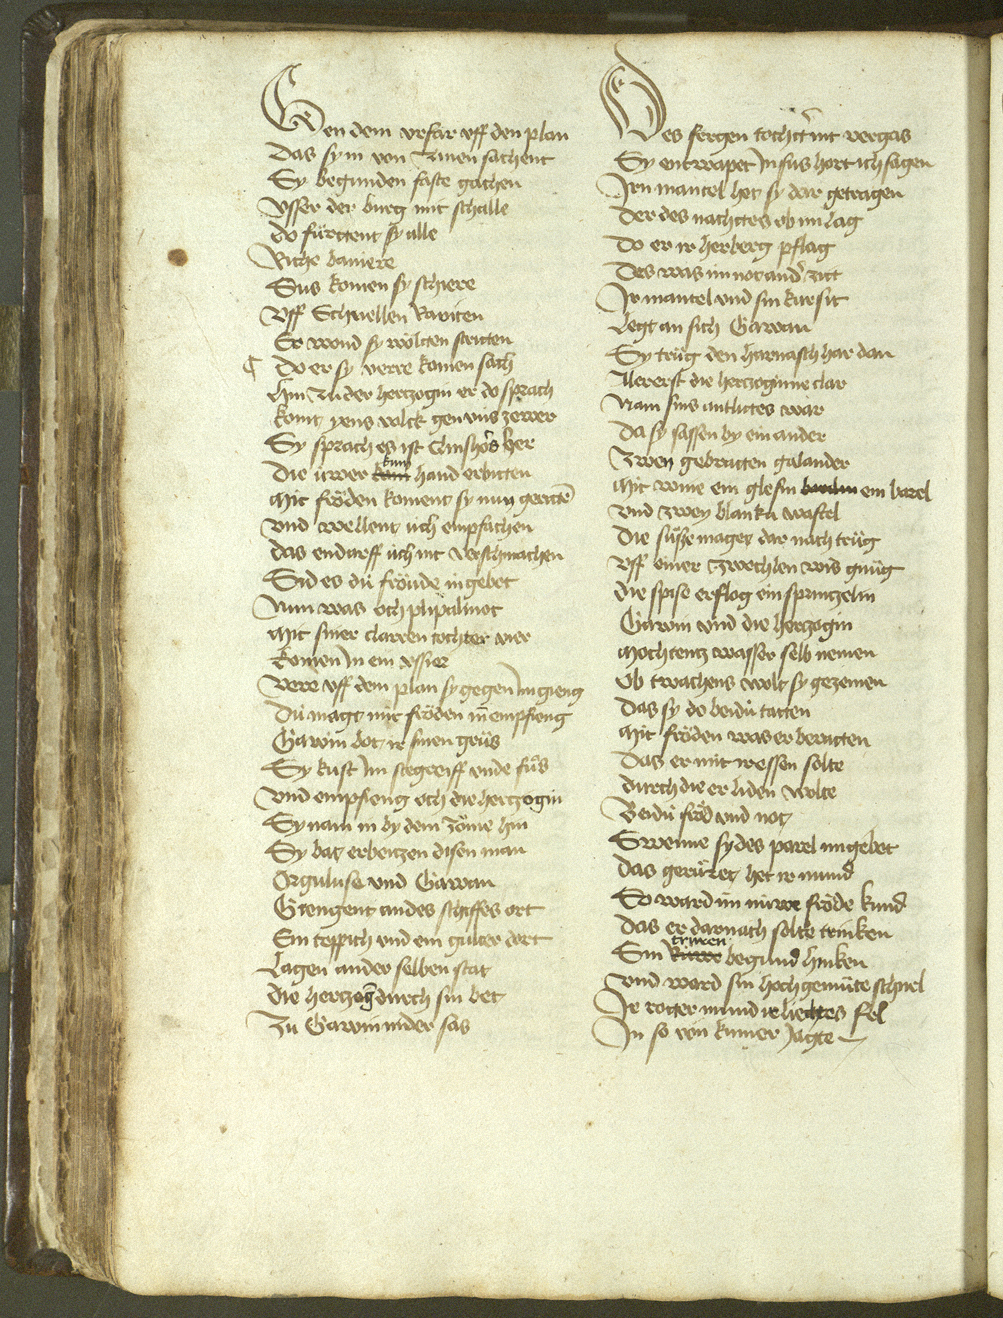 Gen dem vrfar vff den plan
Das sy in von Zinen sachent
Sy begunden faste gachen
Vsser der burg mit schalle
do fürttent sy alle
Riche baniere
Sus komen sy schiere
Vff Schnellen Raviten
Er wond sy wölten striten
Do er sy verre komen sach
Hin Zu der hertzogin er do sprach
komt yens volck gen vns ze wer
Sy sprach es ist Clinshors her
Die üwer kum hand erbitten
Mit fröden koment sy nun geritten
vnd wellent üch empfachen
das endarff üch nit verschmachen
Sid es dü fröude in gebet
Nun was och plipalinot
Mit siner clarren tochter vier
komen In ein vssier
Verre vff dem plan sy gegen Im gieng
Dü magt mit fröden in empfieng
Gawin bot ir sinen grüs
Sy kust Im stegreiff vnde füs
vnd empfieng och die hertzogin
Sy nam in by dem Zome hin
Sy bat erbeitzen disen man
Orguluse vnd Gawan
Giengent an des schiffes ort
Ein teppich vnd ein gulter dort
Lagen an der selben stat
die hertzogin durch sin bet
Zu Gawin nider sas
Des fergen tochter nit vergas
Sy entwapet In sus hort ich sagen
Irn mantel het sy dar getragen
Der des nachttes ob im lag
Do er ir herberg pflag
Des was im not an der zitt
Ir mantel vnd sin kursit
Legt an sich Gawan
Sy trüg den harnasch har dan
Allererst die hertzoginne clar
Nam sins antlittes war
Da sy sassen by ein ander
Zwen gebratten galander
Mit wine ein glesin barel
vnd zwey blanku wastel
Die süsse maget dar nach trüg
vff einer zwechlen wis gnüg
die spise erflog ein sprintzelin
Gawin vnd die hertzogin
Mochtentz wasser selb nemen
Ob twachens wolt sy gezemen
Das sy do beidü tatten
Mit fröden was er beratten
Das er mit ir essen solte
durch die er liden wolte
Beidü fröd vnd not
Swenne sy des parel im gebet
Das gerüret het ir mund
So ward im nüwe fröde kund
Das er dar nach solte trinken
Sin truren begund hinken
vnd ward sin hochgemüte schnel
Ir rotter mund ir liechtes fel
In so von kumer Jagte